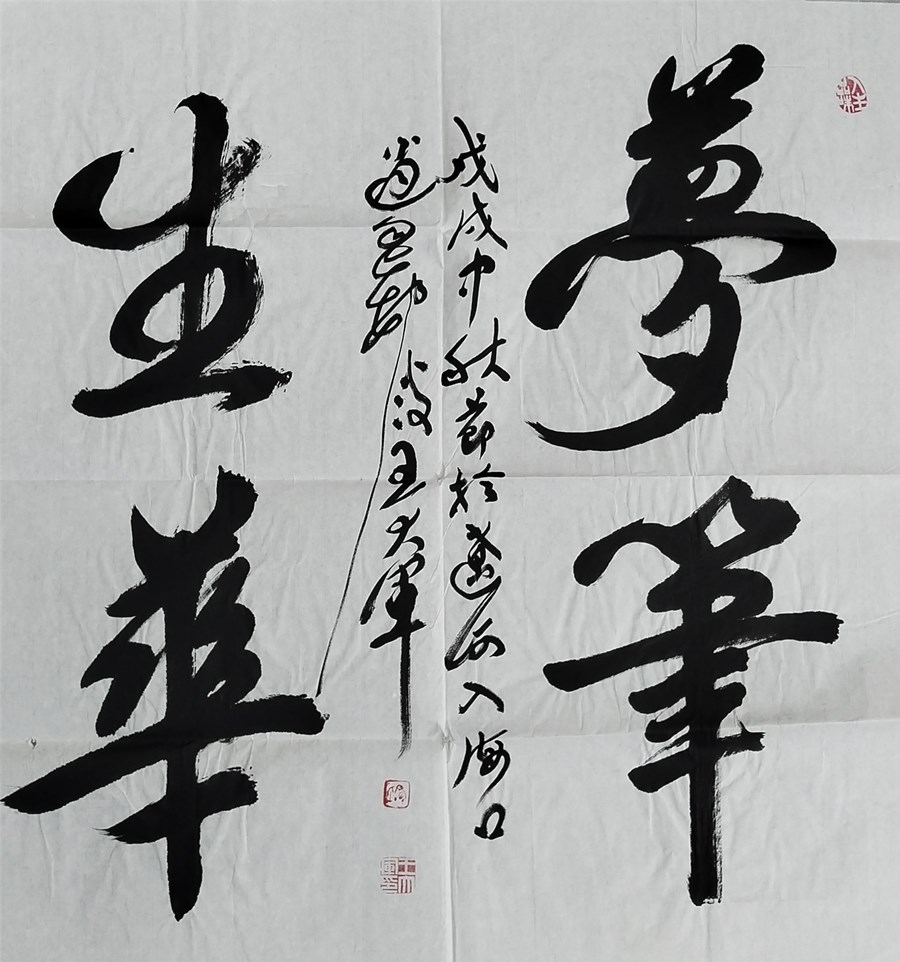 夢筆
生華
戊戌中秋節於遼河入海口
道墨
王大軍